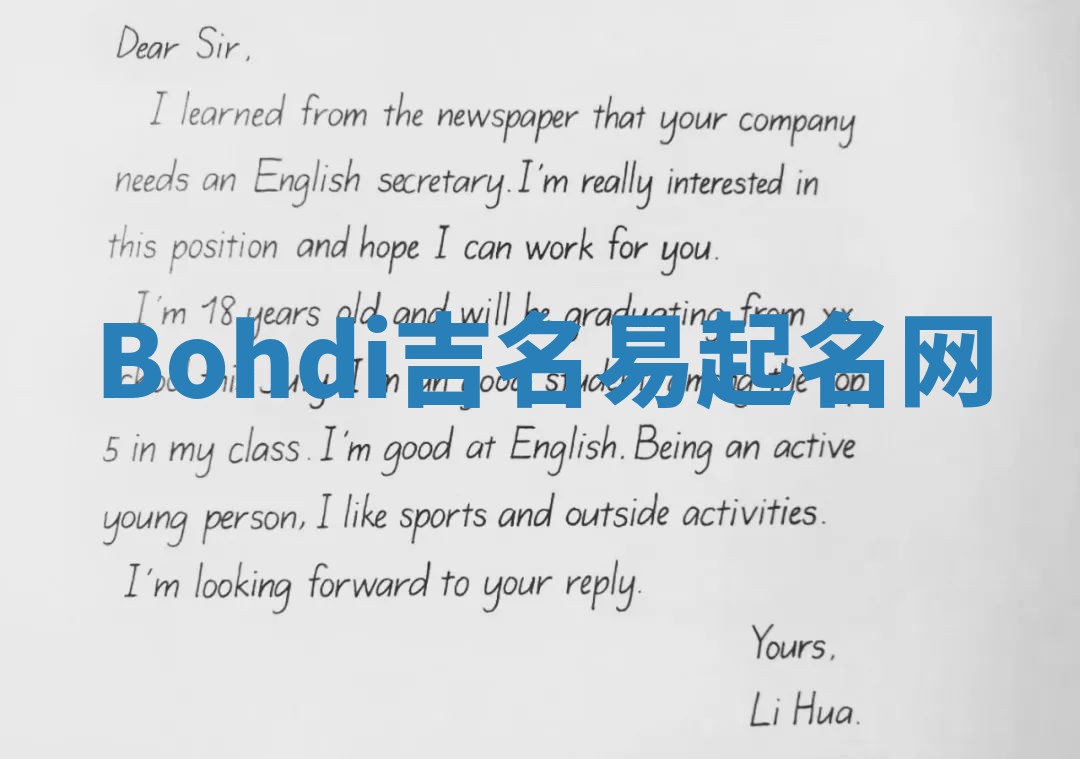 Dear Sir,
I learned from the newspaper that your company
needs an English secretary. I'm really interested in
this position and hope I can work for you.
I'm 18 years old and will be graduating from xx
Bohdi吉名易起名网
5 in my class. I'm good at English. Being an active
young person, I like sports and outside activities.
I'm looking forward to your reply.
Yours,
Li Hua.